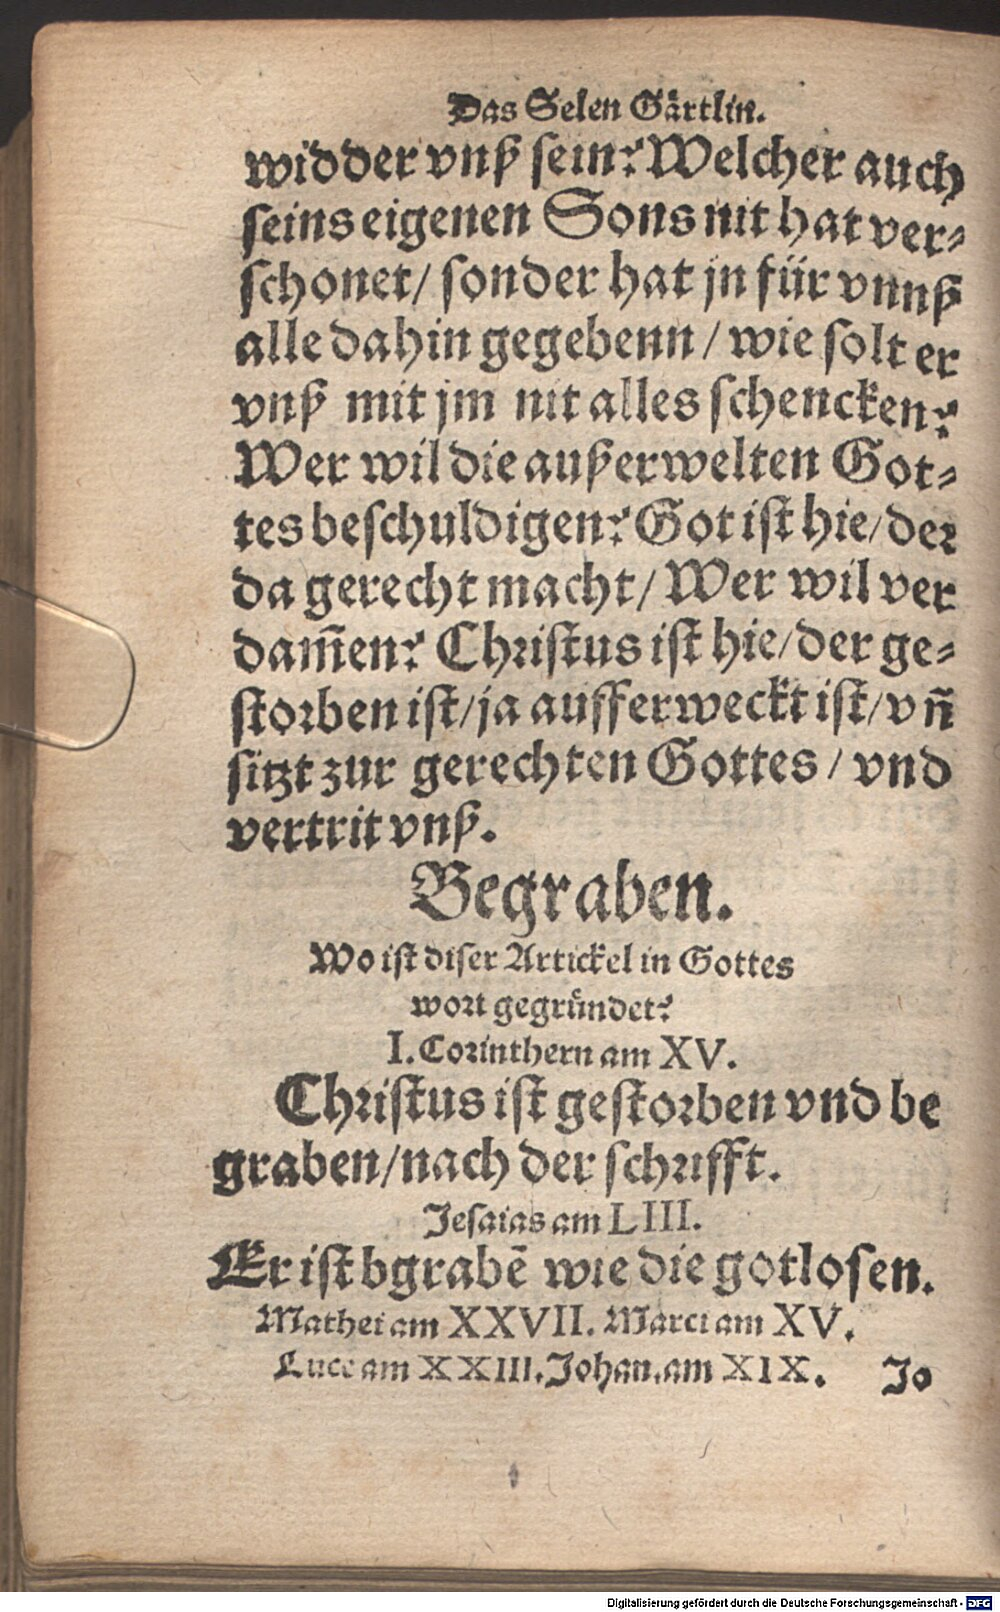 Das Selen Gärtlin.
widder vnß sein? Welcher auch
seins eigenen Sons nit hat ver-
schonet / sonder hat jn für vnnß
alle dahin gegebenn / wie solt er
vnß mit jm nit alles schencken?
Wer wil die außerwelten Got-
tes beschuldigen? Got ist hie / der
da gerecht macht / Wer wil ver
dam̄en? Christus ist hie / der ge-
storben ist / ja aufferweckt ist / vn̄
sitzt zur gerechten Gottes / vnd
vertrit vnß.
Begraben.
Wo ist diser Artickel in Gottes
wort gegründet?
I. Corinthern am XV.
Christus ist gestorben vnd be
graben / nach der schrifft.
Jesaias am LIII.
Er ist bgrabē wie die gotlosen.
Mathei am XXVII. Marci am XV.
Luce am XXIII. Johan. am XIX. Jo
Digitalisierung gefördert durch die Deutsche Forschungsgemeinschaft - DFG